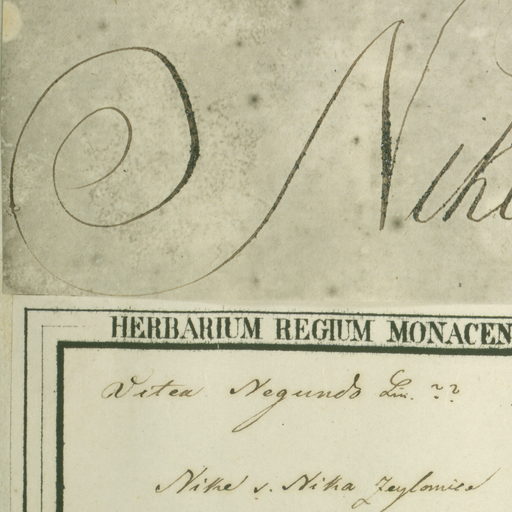 Nik
HERBARIUM REGIUM MONACEN
Vitex Negundo Lin. ??
Nike s. Nika Zeylonice